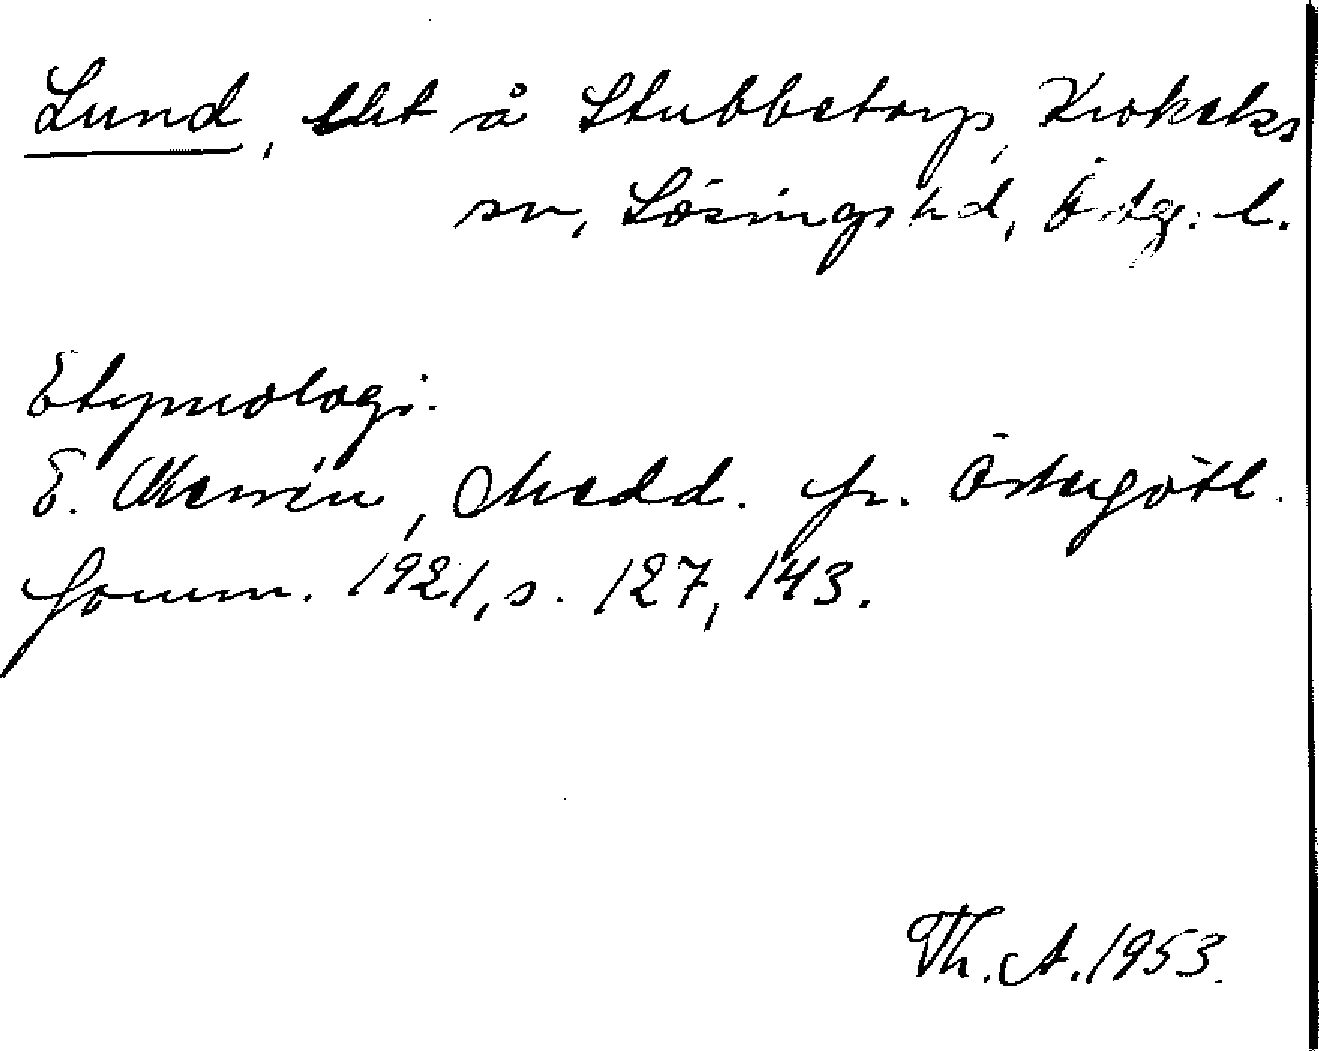 Lund, lht å Stubbetorp, Krokeks
sn, Lösings hd, Östg. l.
Etymologi.
E. Wessén, Medd. fr. Östergötl.
fornm. 1921, s. 127, 143.
Th. A. 1953.